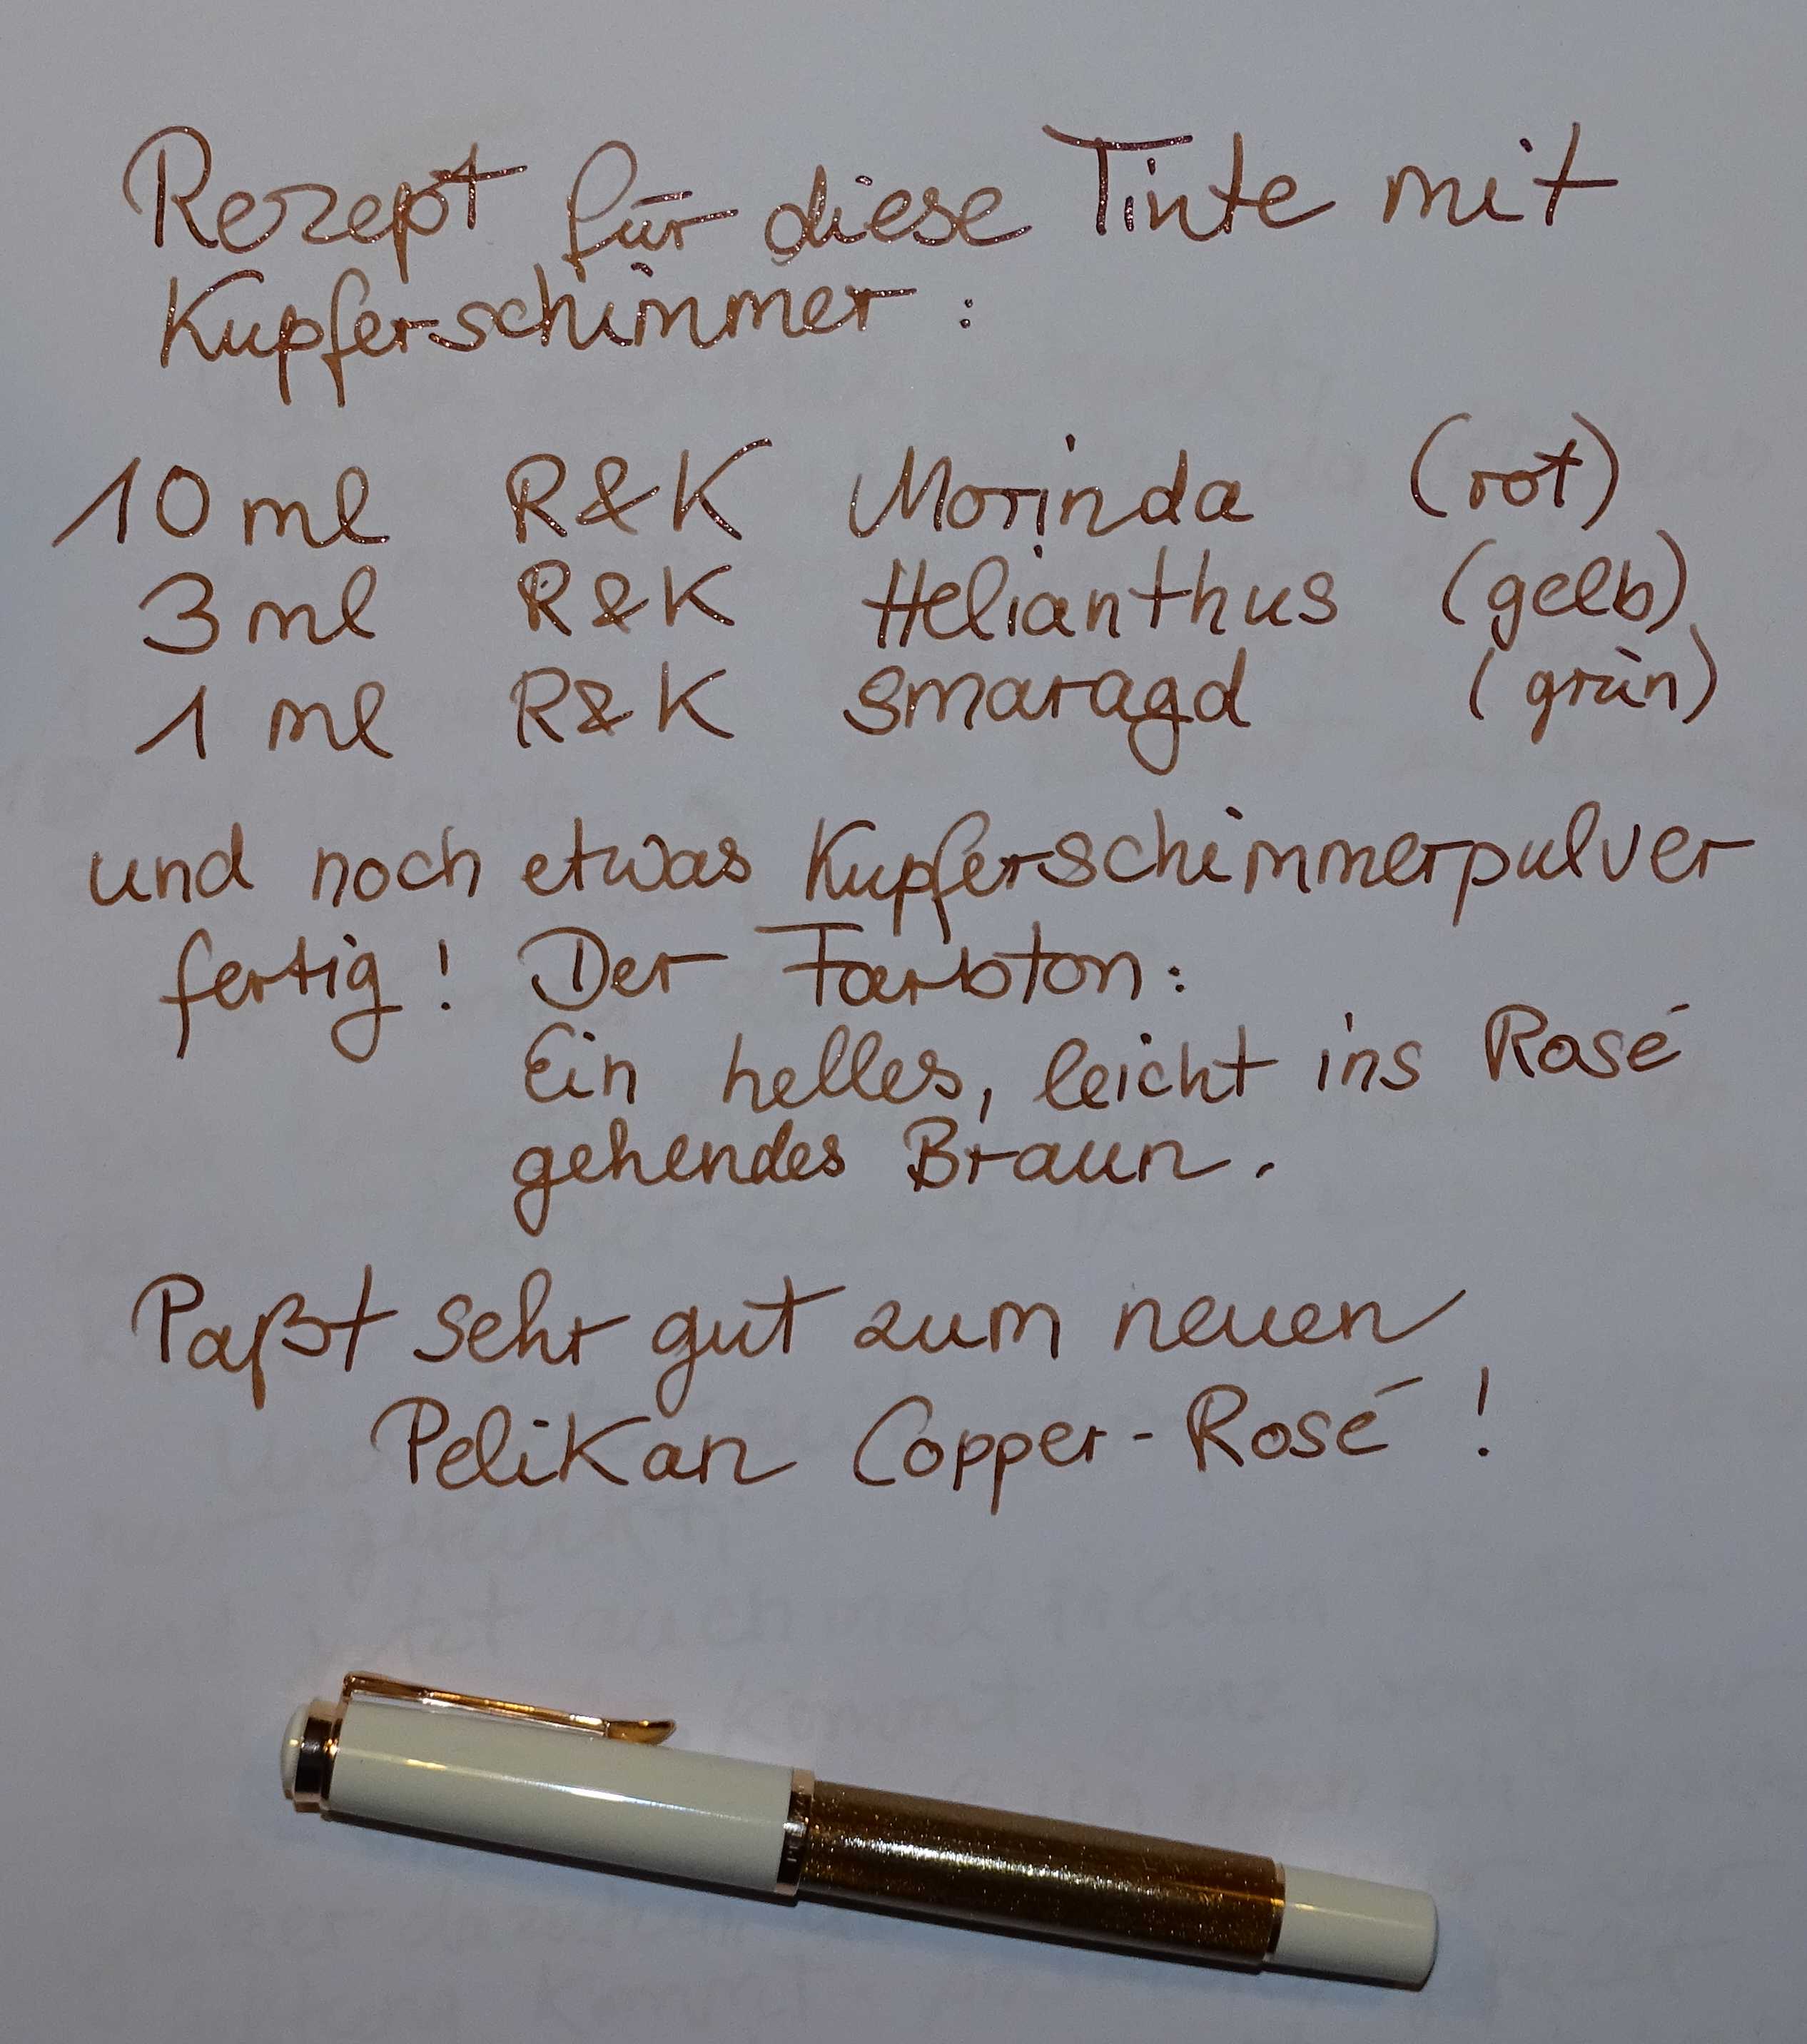 Rezept für diese Tinte mit
Kupferschimmer :
10 ml R&K Morinda (rot)
3 ml R&K Helianthus (gelb)
1 ml R&K Smaragd (grün)
und noch etwas Kupferschimmerpulver
fertig! Der Farbton:
Ein helles, leicht ins Rosé
gehendes Braun.
Paßt sehr gut zum neuen
Pelikan Copper-Rosé !
auch mal
kommt